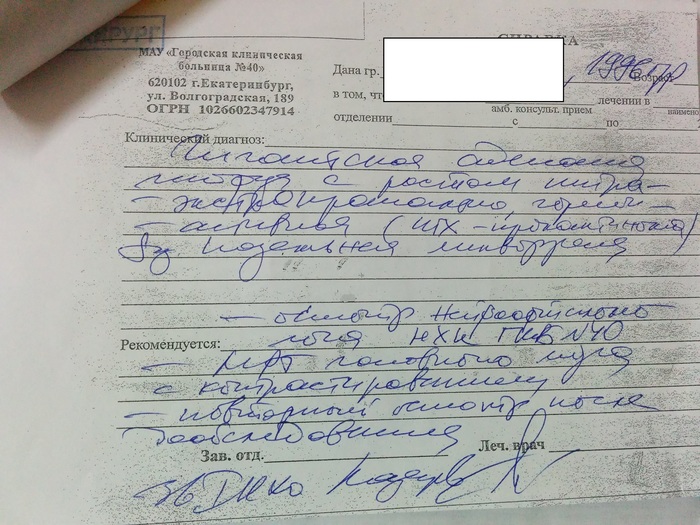 ХИРУРГ
СПРАВКА
МАУ «Городская клиническая
больница №40»
620102 г.Екатеринбург,
ул. Волгоградская, 189
ОГРН 1026602347914
Дана гр. , 1996 гр Возраст
в том, чт лечении в
амб. консульт. прием
отделении с по
Клинический диагноз:
Гигантская аденома
гипофиза с ростом интра-
- экстра
- активная (ИГХ - пролактинома)
Назальная ликворрея
- осмотр
Рекомендуется: НХК ГКБ N40
- МРТ головного мозга
с контрастированием
- повторный осмотр после
дообследования
Зав. отд. Леч. врач